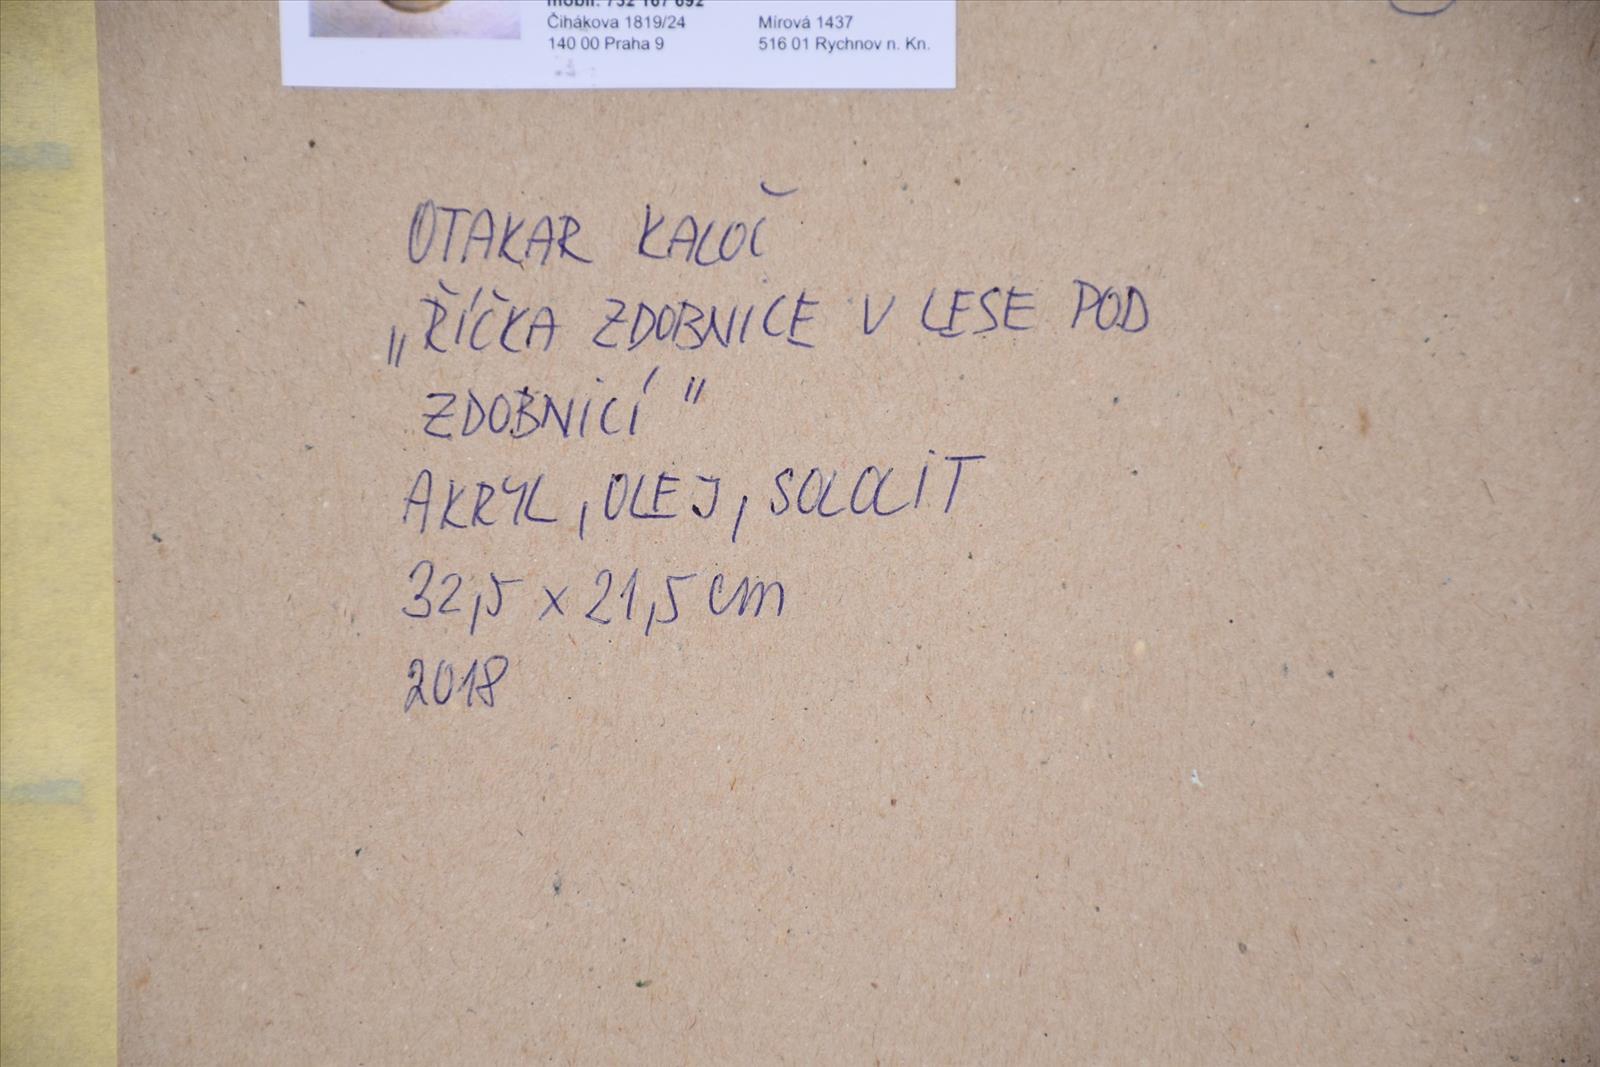 mobil: 732 167 692
Čihákova 1819/24
140 00 Praha 9
Mírová 1437
516 01 Rychnov n. Kn.
OTAKAR KALOČ
„ŘÍČKA ZDOBNICE V LESE POD
ZDOBNICÍ"
AKRYL, OLEJ, SOLOLIT
32,5 x 21,5 cm
2018